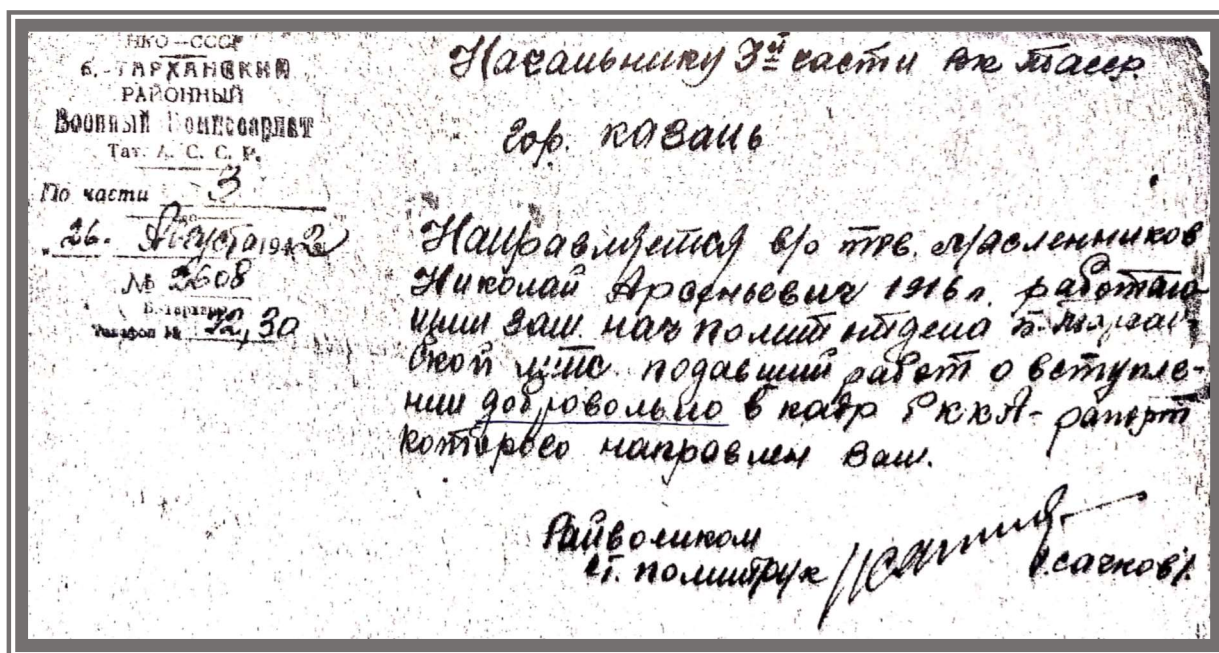 НКО-СССР
Б.-ТАРХАНСКИЙ
РАЙОННЫЙ
Военный Комиссариат
Тат. А. С. С. Р.
По части 3
"26." Августа 1942
№ 2608
Б.-Тарханы
Телефон № 32, 30
Начальнику 3й части вк тасср.
гор. Казань
Направляется в/о тов. Масленников
Николай Арсеньевич 1916 г. работаю
щий зам. нач полит отдела Б. Тархан-
ской мтс. подавший рапорт о вступле-
нии добровольно в кадр РККА - рапорт
которого направлен Вам.
Райвоенком
ст. политрук
/Усачков/.